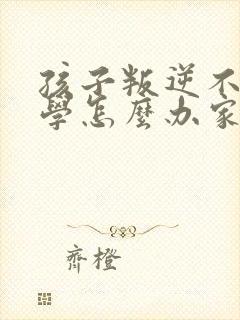 孩子叛逆不
學怎麼办家
齊橙